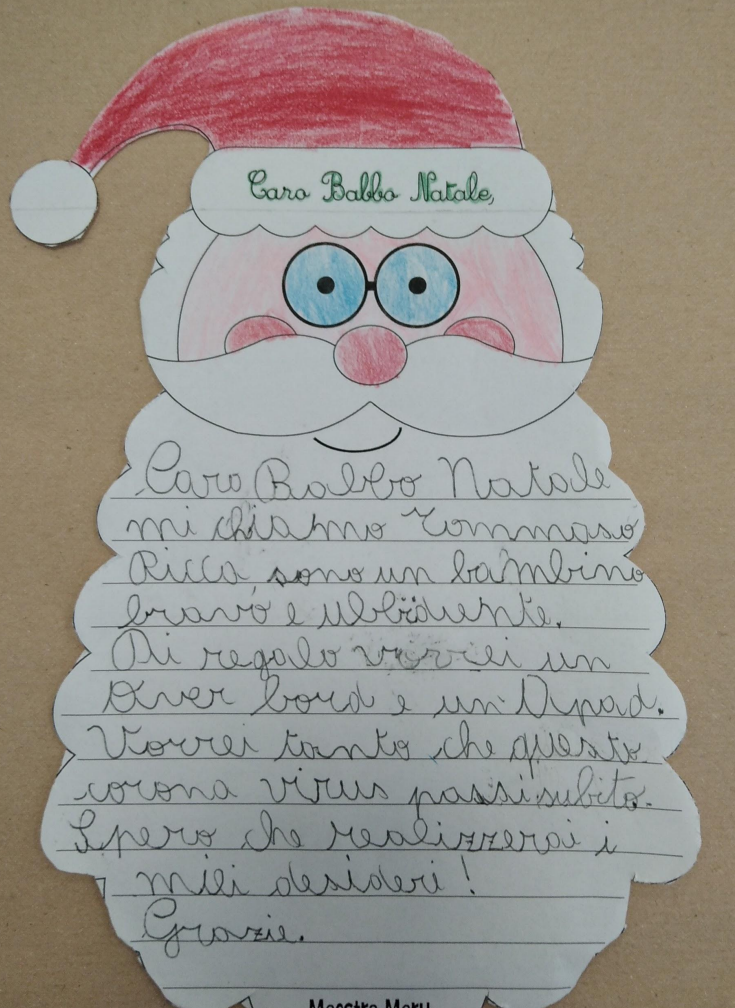 Caro Babbo Natale,
Caro Babbo Natale
mi chiamo Tommaso
Ricca, sono un bambino
bravo e ubbidiente.
Di regalo vorrei un
Over bord e un Dipad.
Vorrei tanto che questo
corona virus passi subito.
Spero che realizzerai i
miei desideri!
Grazie.
Maestra Mary